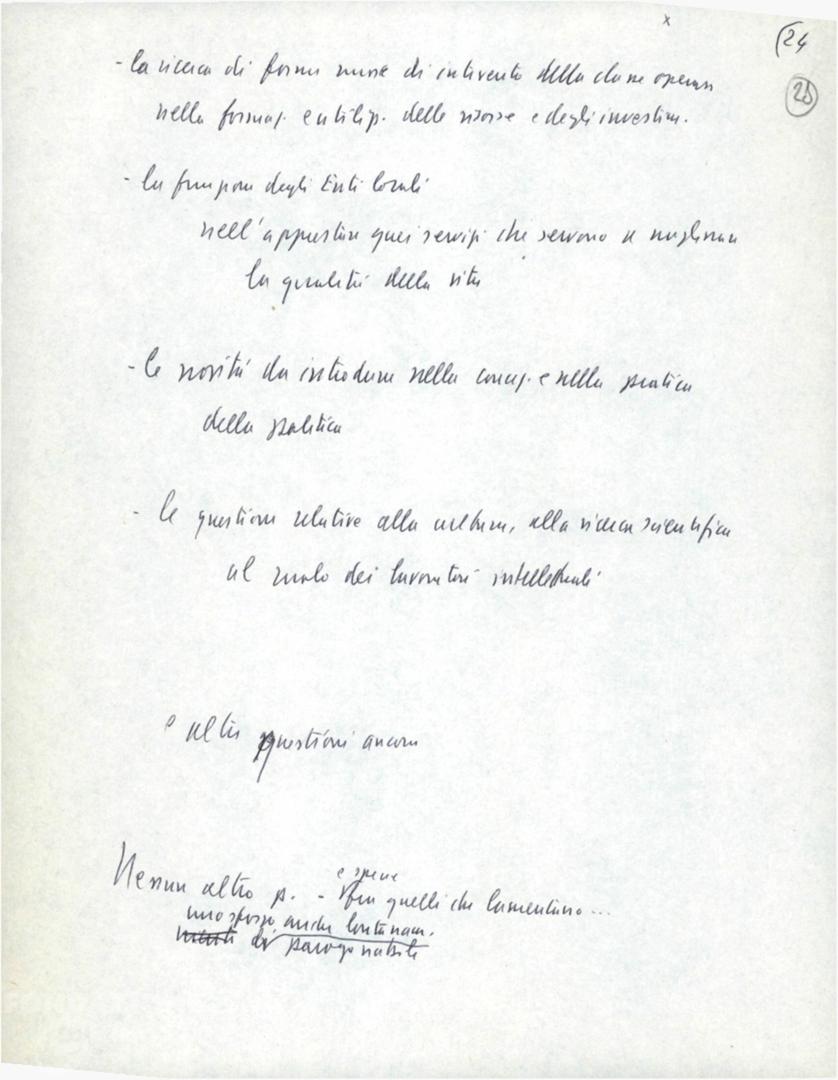 x
(24
25
- la ricerca di forme nuove di intervento della classe operaia
nella formaz. e utiliz. delle risorse e degli investim.
- la funzione degli Enti locali
nell'apprestare quei servizi che servono a migliorare
la qualità della vita
- le novità da introdurre nella concez. e nella pratica
della politica
- le questioni relative alla cultura, alla ricerca scientifica
al ruolo dei lavoratori intellettuali
e altre questioni ancora
e specie
Nessun altro p. - fra quelli che lamentano...
uno sforzo anche lontanam.
di paragonabile